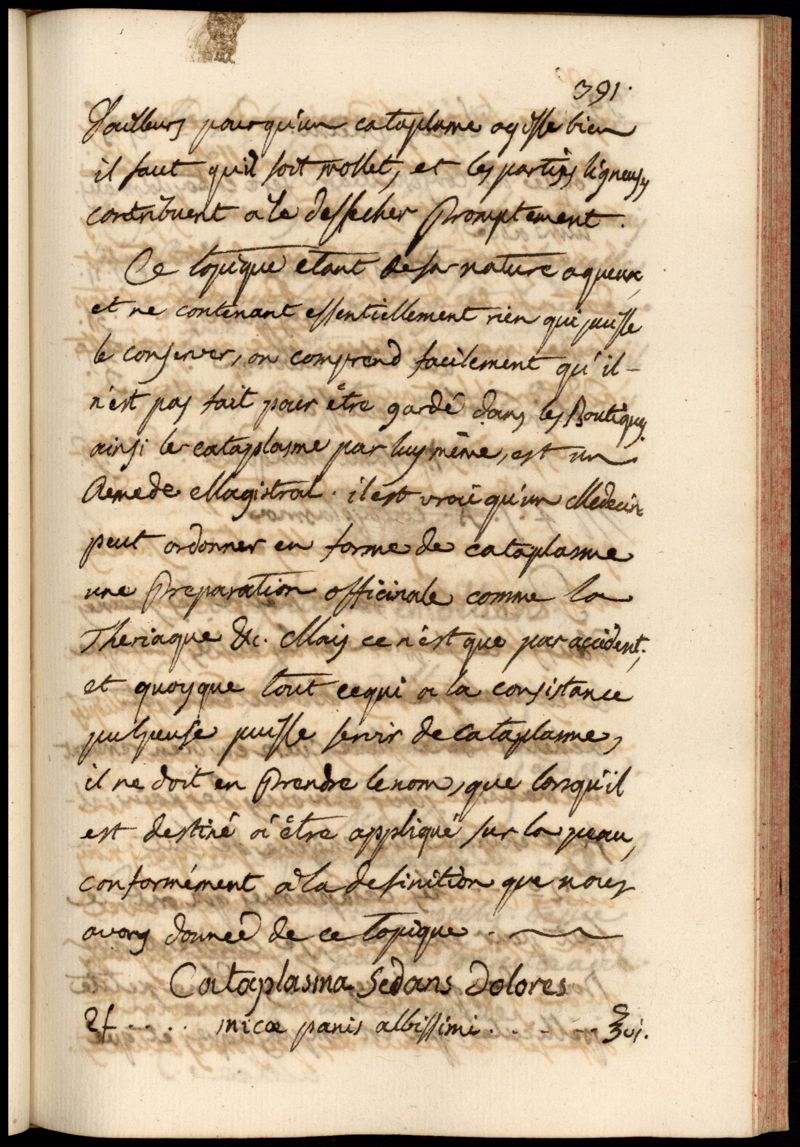 391.
D'ailleurs pour qu'un cataplame agisse bien
il faut qu'il soit mollet, et les parties ligneuses
contribuent a le dessecher Promptement.
Ce topique etant de sa nature aqueux,
et ne contenant essentiellement rien qui puisse
le conserver, on comprend facilement qu'il
n'est pas fait pour être gardé dans les Boutiques.
ainsi le cataplasme par luy même, est un
Remede Magistral. il est vrai qu'un Medecin
peut ordonner en forme de cataplasme
une Preparation officinale comme la
Theriaque &c. Mais ce n'est que par accident;
et quoyque tout ce qui a la consistance
pulpeuse puisse servir de cataplasme,
il ne doit en Prendre le nom, que lorsqu'il
est destiné à être appliqué sur la peau,
conformément à la definition que nous
avons donneé de ce topique.
Cataplasma Sedans Dolores
♃ .... micæ panis albissimi ..... ℥vi.